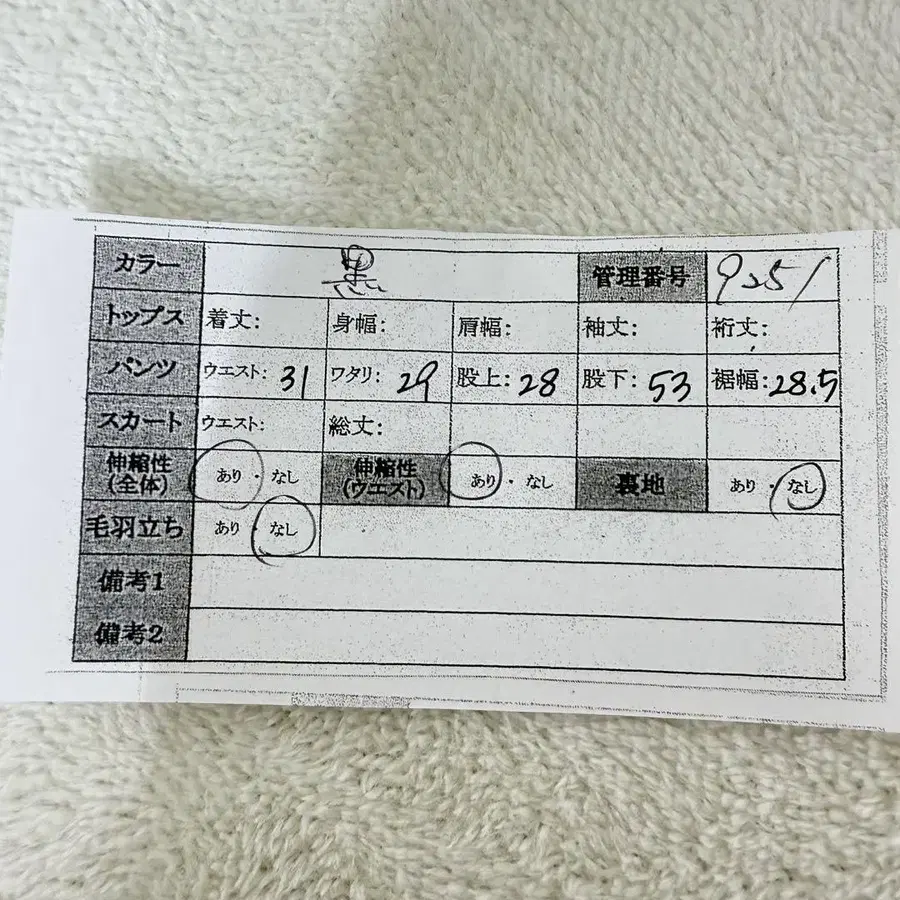 カラー 黒 管理番号 9251
トップス 着丈: 身幅: 肩幅: 袖丈: 裄丈:
パンツ ウエスト: 31 ワタリ: 29 股上: 28 股下: 53 裾幅: 28.5
スカート ウエスト: 総丈:
伸縮性(全体) あり・なし 伸縮性(ウエスト) あり・なし 裏地 あり・なし
毛羽立ち あり・なし
備考1
備考2